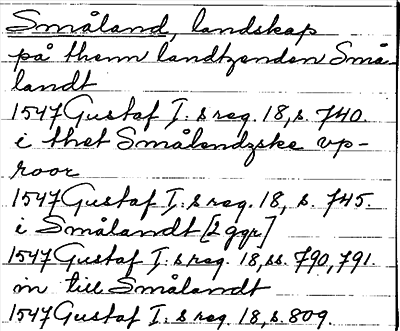 Småland, landskap
på thenn landtzenden Små-
landt
1547 Gustaf I:s reg. 18, s. 740.
i thet Smålendzske vp-
roor
1547 Gustaf I:s reg. 18, s. 745.
i Smålandt [2 ggr]
1547 Gustaf I:s reg. 18, ss. 790, 791.
in till Smålandt
1547 Gustaf I:s reg. 18, s. 809.